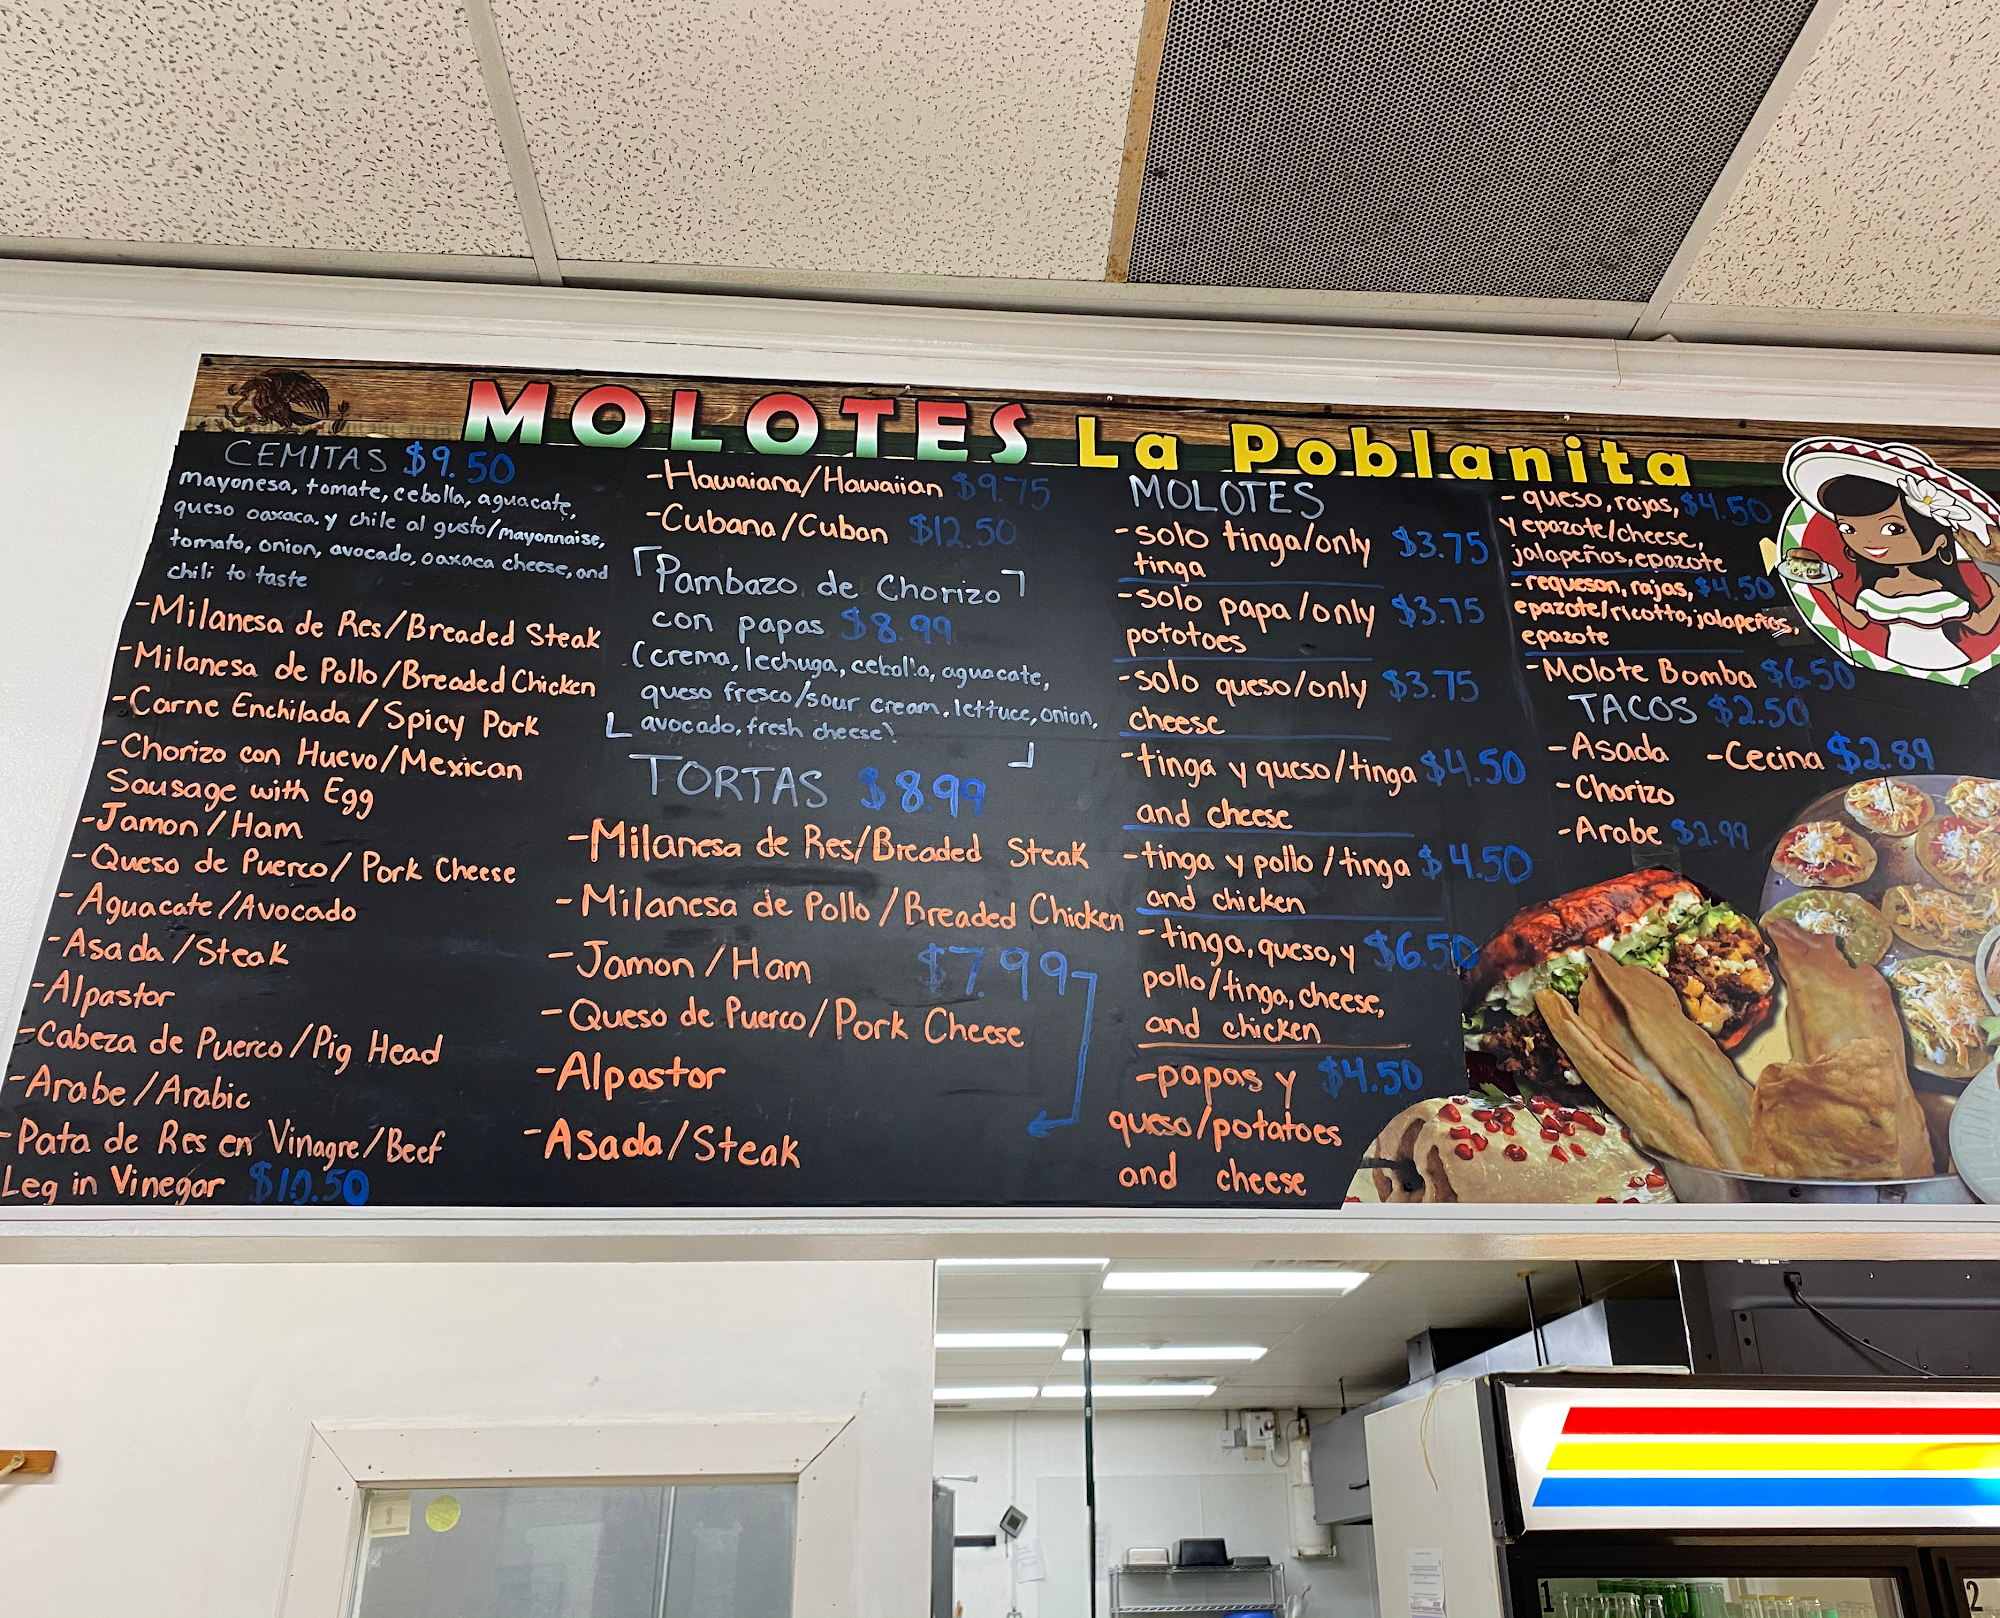 MOLOTES La Poblanita
CEMITAS $9.50
mayonesa, tomate, cebolla, aguacate,
queso oaxaca, y chile al gusto/mayonnaise,
tomato, onion, avocado, oaxaca cheese, and
chili to taste
-Milanesa de Res/Breaded Steak
-Milanesa de Pollo/Breaded Chicken
-Carne Enchilada/Spicy Pork
-Chorizo con Huevo/Mexican
Sausage with Egg
-Jamon/Ham
-Queso de Puerco/Pork Cheese
-Aguacate/Avocado
-Asada/Steak
-Alpastor
-Cabeza de Puerco/Pig Head
-Arabe/Arabic
-Pata de Res en Vinagre/Beef
Leg in Vinegar $10.50
-Hawaiana/Hawaiian $9.75
-Cubana/Cuban $12.50
Pambazo de Chorizo
con papas $8.99
(crema, lechuga, cebolla, aguacate,
queso fresco/sour cream, lettuce, onion,
avocado, fresh cheese)
TORTAS $8.99
-Milanesa de Res/Breaded Steak
-Milanesa de Pollo/Breaded Chicken
-Jamon/Ham $7.99
-Queso de Puerco/Pork Cheese
-Alpastor
-Asada/Steak
MOLOTES
-solo tinga/only $3.75
tinga
-solo papa/only $3.75
pototoes
-solo queso/only $3.75
cheese
-tinga y queso/tinga $4.50
and cheese
-tinga y pollo/tinga $4.50
and chicken
-tinga, queso, y $6.50
pollo/tinga, cheese,
and chicken
-papas y $4.50
queso/potatoes
and cheese
-queso, rajas, $4.50
y epazote/cheese,
jalapeños, epazote
-requeson, rajas, $4.50
epazote/ricotta, jalapeños,
epazote
-Molote Bomba $6.50
TACOS $2.50
-Asada -Cecina $2.89
-Chorizo
-Arabe $2.99
1
2